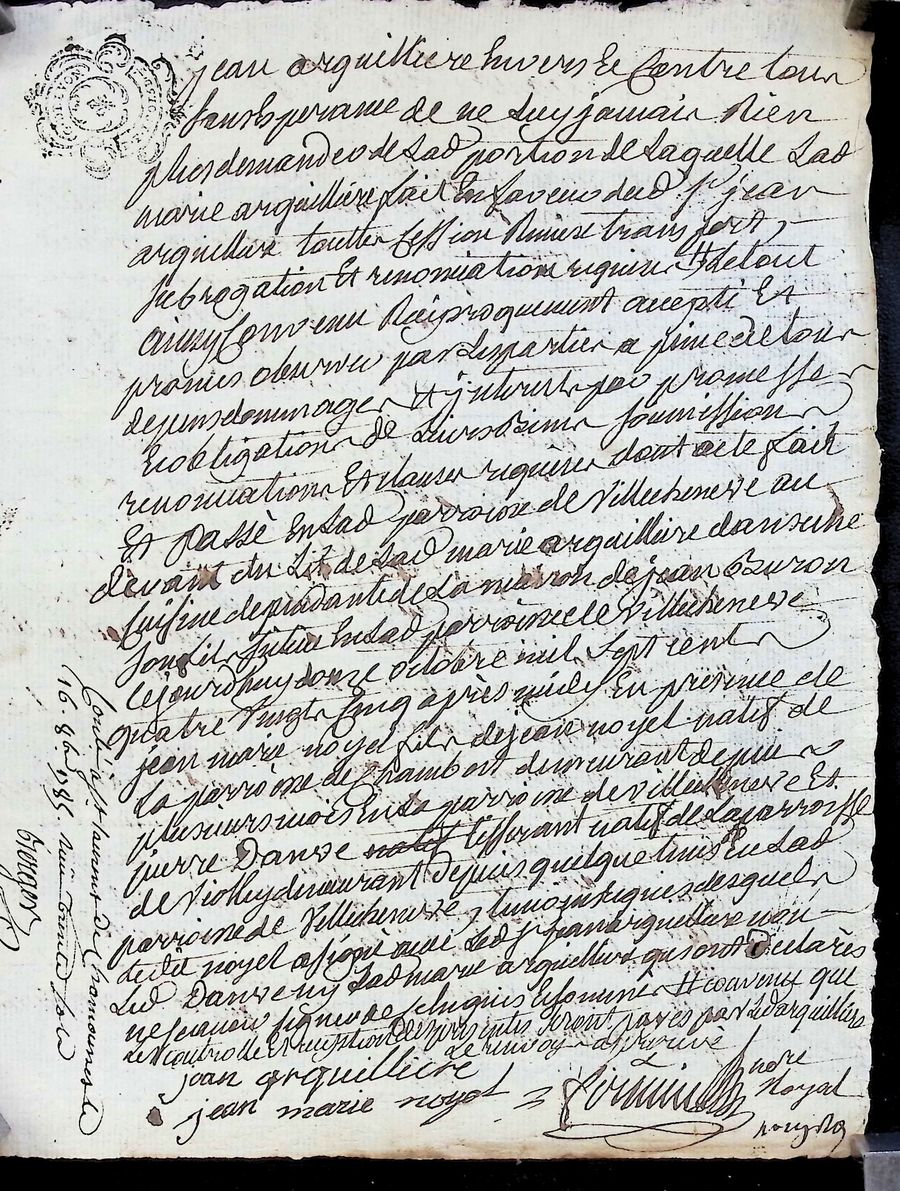 jean arquilliere Envers Et Contre tous
sans Esperance de ne Luy jamais Rien
plus demander de Lad portion de Laquelle Lad
marie arquilliere fait En faveur dud Sr jean
arquilliere toutte Cession Remise transport,
subrogation Et renonciation requise # de tout
ainsy Convenu Réciproquement accepté Et
promis observer par Les parties a peine de tous
depens dommages Et jnterests par promesses
Et obligations de Leurs Biens soumissions
renonciations Et clauses requises dont acte fait
Et Passé En Lad parroisse de Villecheneve au
devant du Lit de Lad marie arquilliere dans une
Cuisine dependante de La maison de jean Buron
son fils située En Lad parroisse de Villecheneve
Cejourdhuy douze octobre mil sept cent
quatre Vingt Cinq après midy En presence de
jean marie noyel fils de jean noyel natif de
La parroisse de Chambost demeurant depuis
plusieurs mois En La parroisse de Villecheneve Et
pierre Danve tisserant natif de La parroisse
de Violley demeurant Depuis quelque tems En Lad
parroisse de Villecheneve, temoins requis desquels
Led noyel a signé avec Led Sr jean arquilliere non
Led Danve ny Lad marie arquilliere qui ont Déclarés
ne Scavoir signer de Ce Enquis Et Sommés # convenu que
Le Controlle Et expedition des presentes seront payés par Led arquilliere
Le renvoy approuvé
jean arquilliere
jean marie noyel
nore
Royal
Controlé a St Laurent de Chamousset Le
16. 8bre 1785.